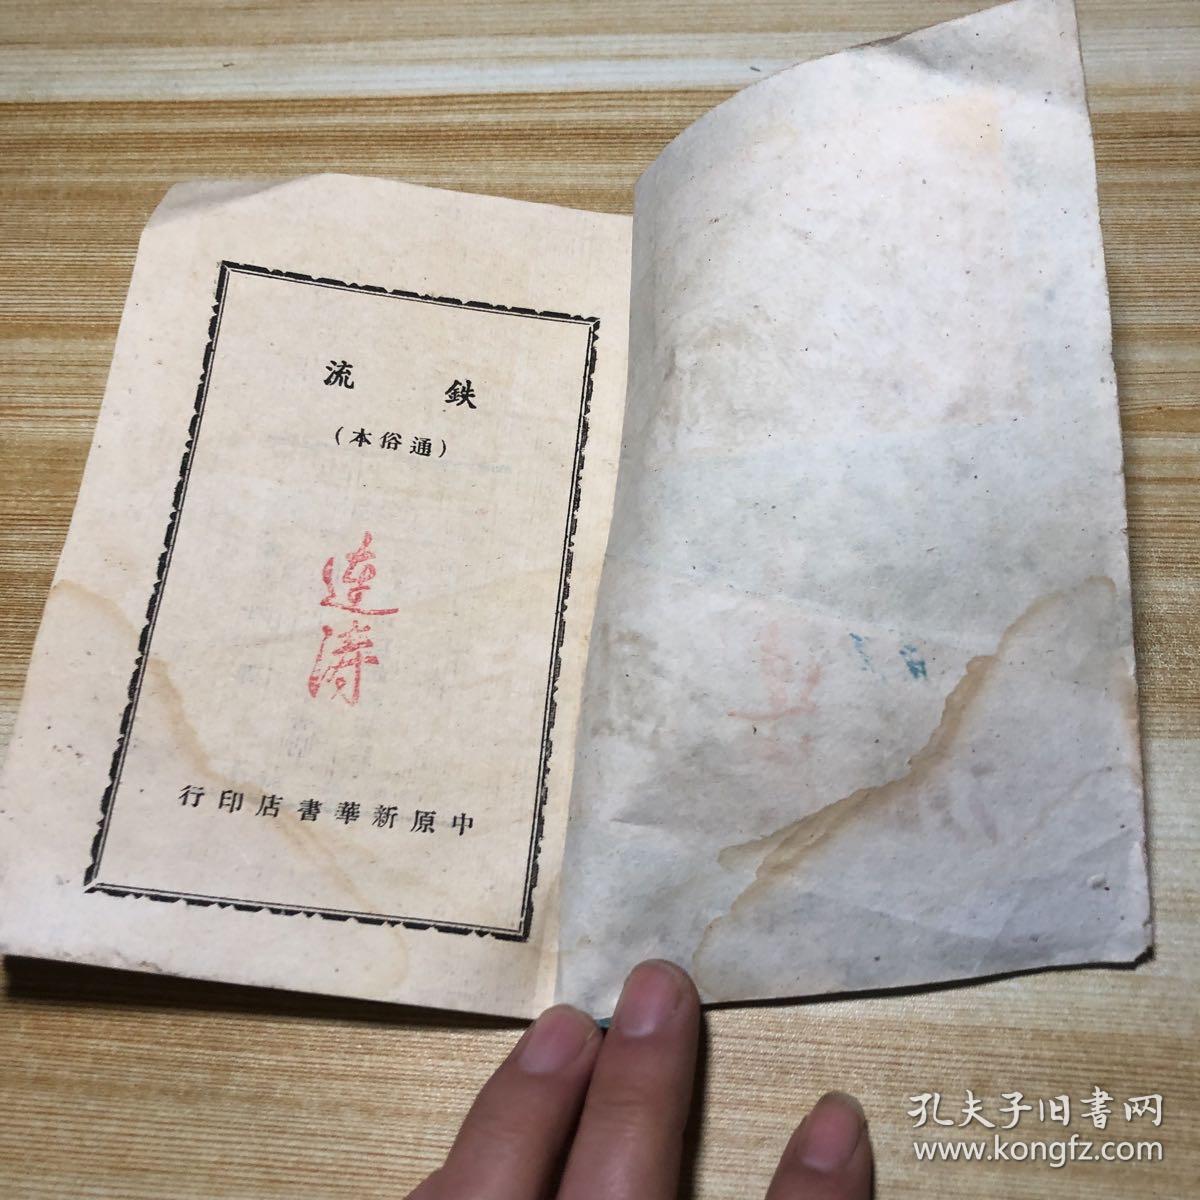 鉄流
（通俗本）
连涛
中原新華書店印行
孔夫子旧書网
www.kongfz.com